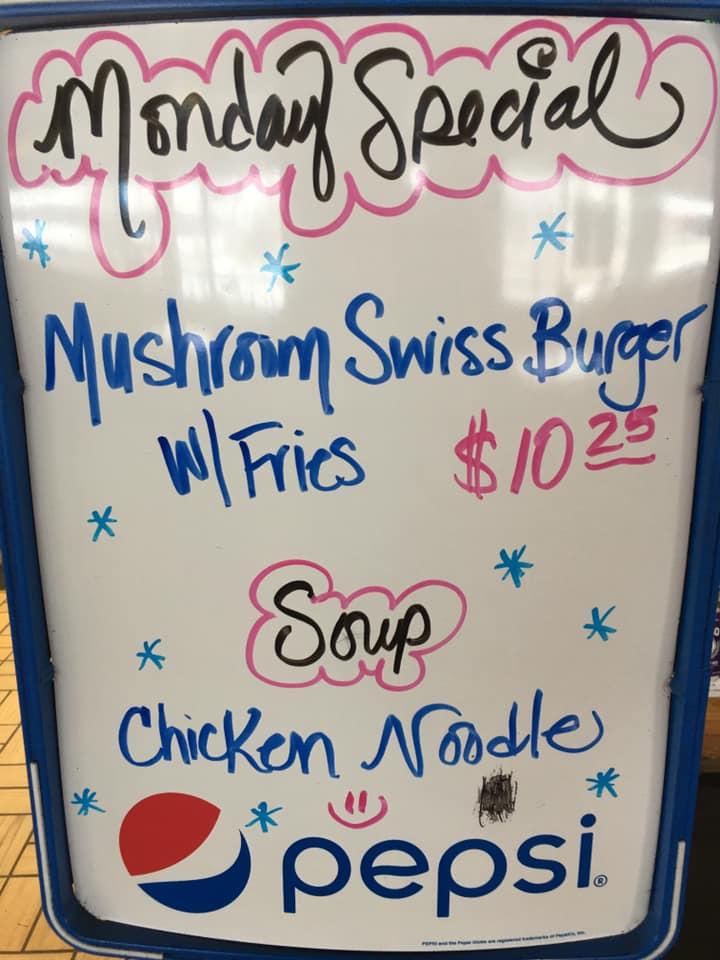 Monday Special
Mushroom Swiss Burger
W/ Fries $10 25
Soup
Chicken Noodle
pepsi®
PEPSI and the Pepsi Globe are registered trademarks of PepsiCo, Inc.